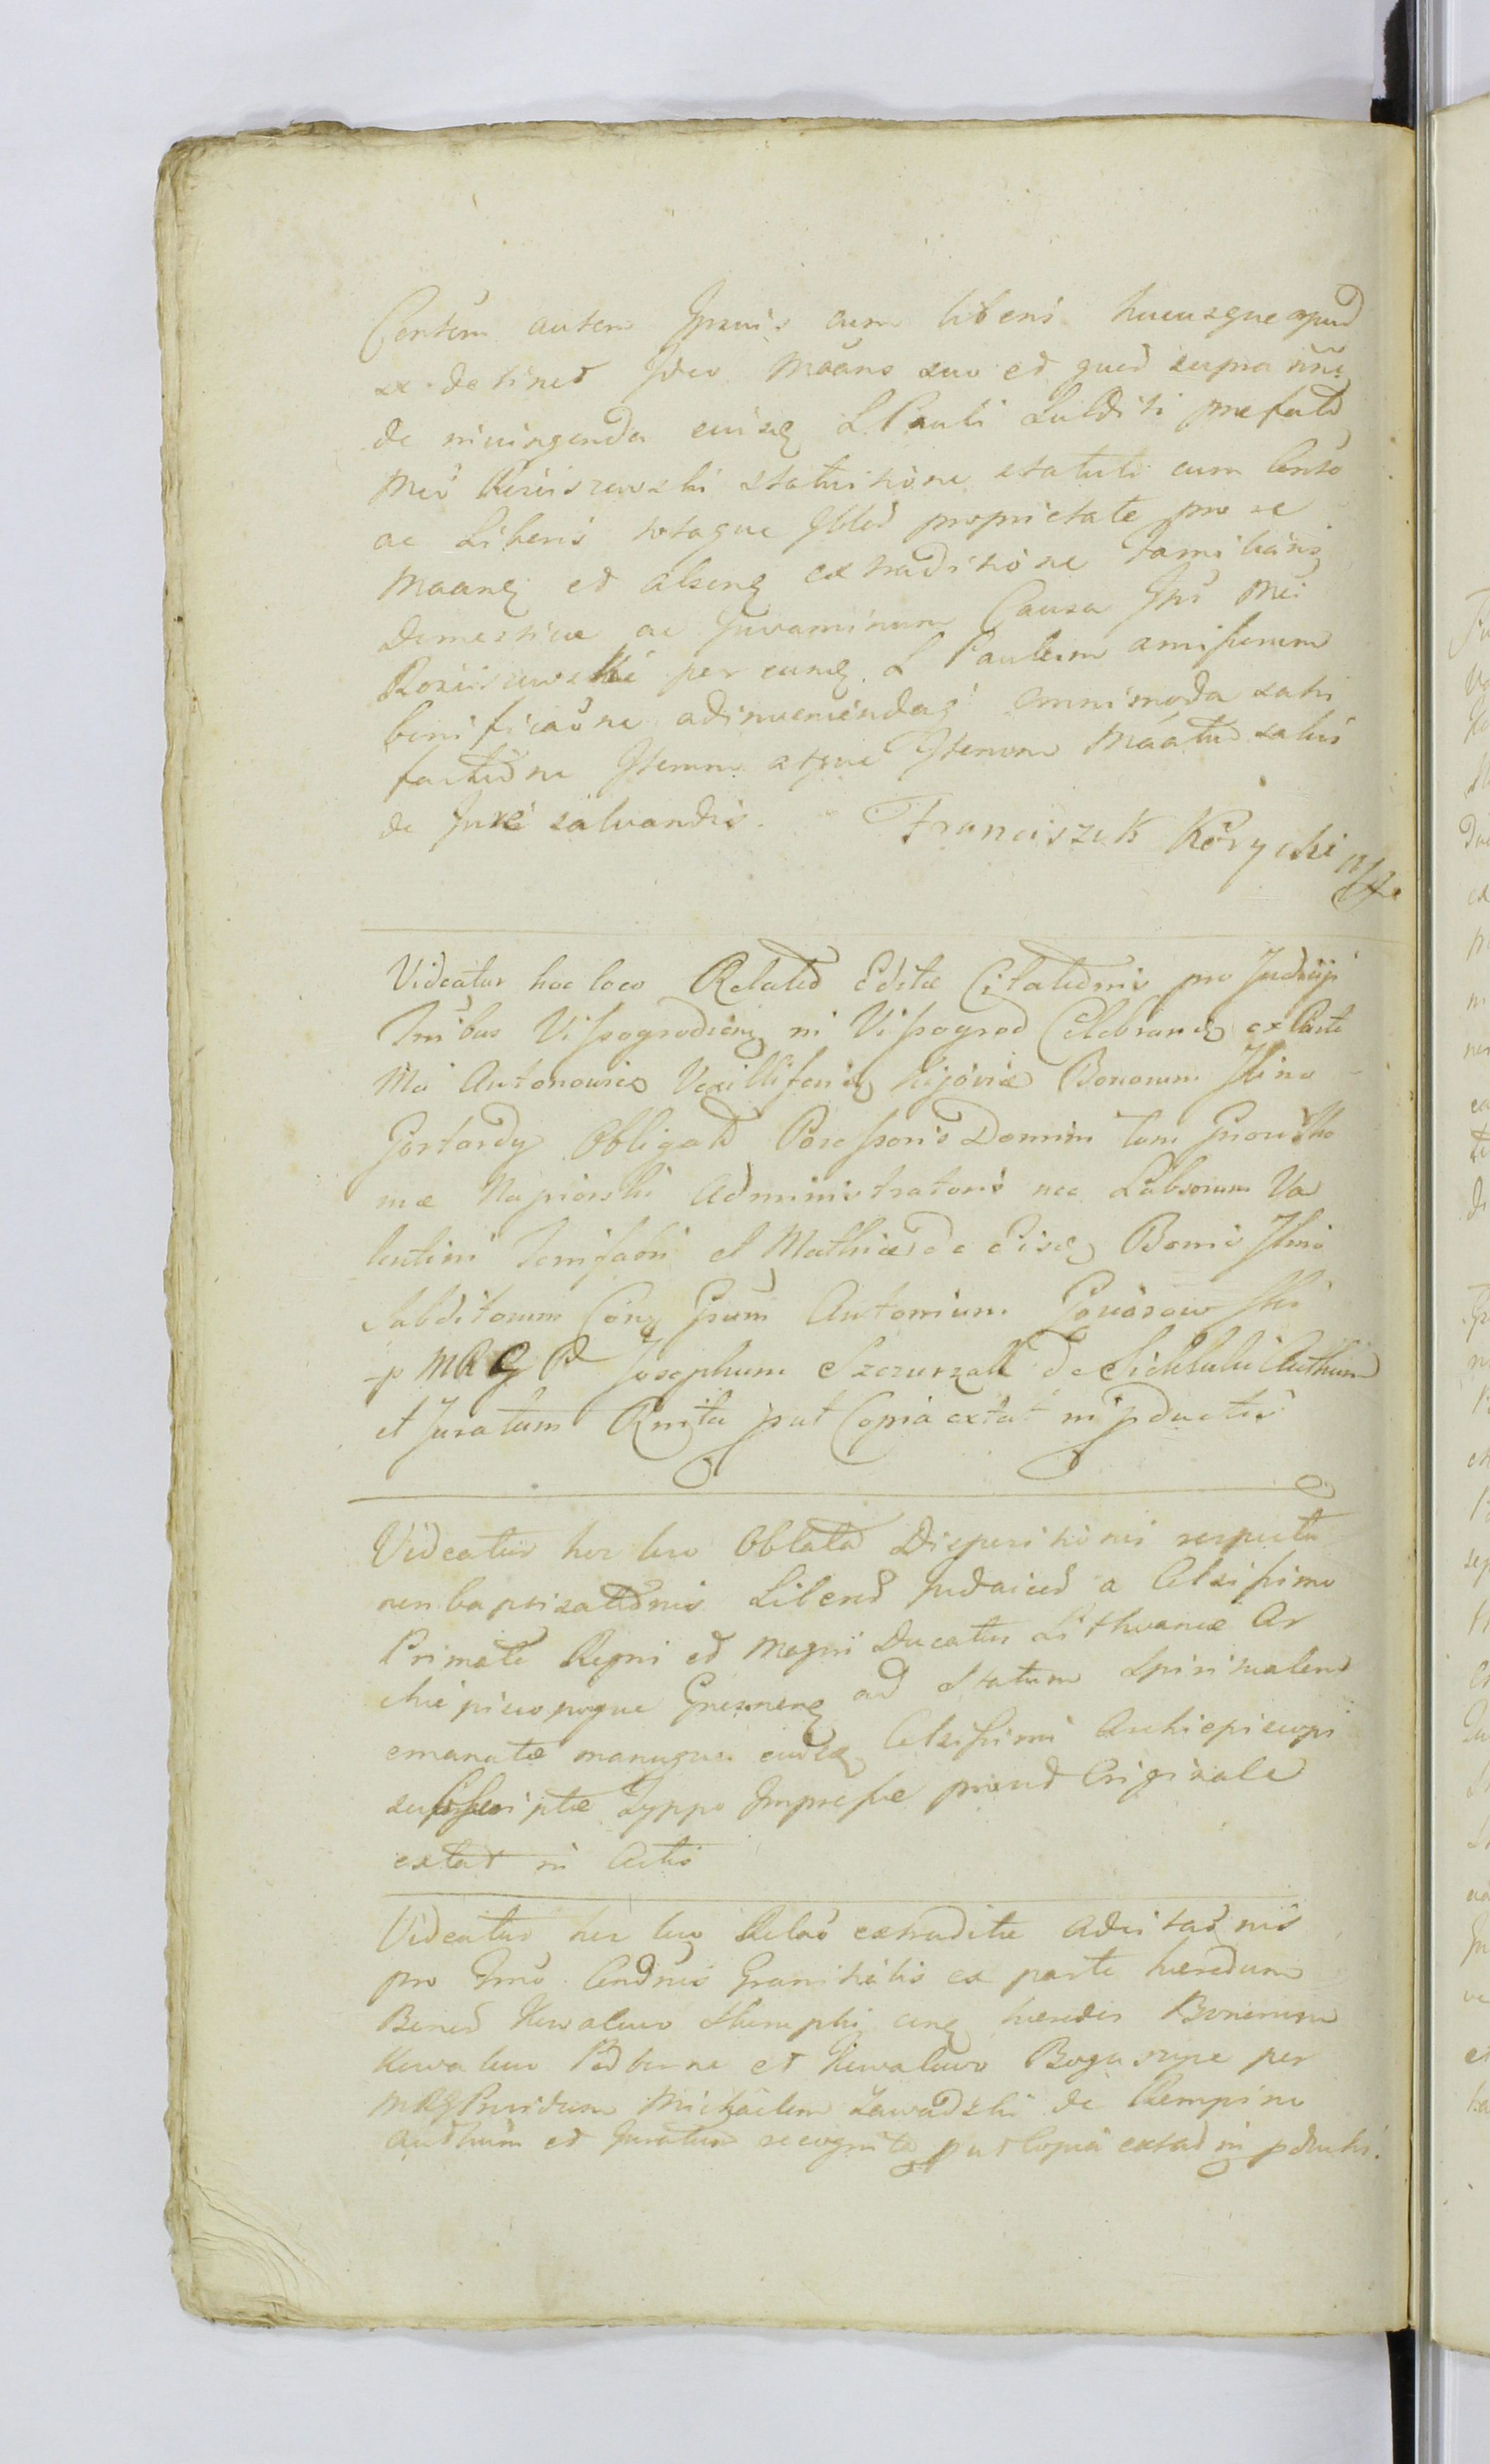 Censum autem Ipsius cum liberis hucusque apud
se detinet Ideo Maans suo et quod supra
de ejusq L Pauli Subditi prefato
Mco Kosciszewski statuitione statuti cum Censo
ac Liberis totaque Ipsius proprietate pro se
Maanq et absenq extraditione familiariq
Domesticae ac Juvaminum Causa Ipsi Mci
Rosciszewski per eunq L Paulum amissorum
bonificaone adinveniendaq omnimoda satis
factione Iterum atque Iterum salvis
de Jure salvandis. Franciszek Kosycki mp
Videatur hoc loco Relatio Editae Citationis pro Judicijs
Tribus Vissogrodienq in Vissogrod Celebranq ex Parte
Mci Antonowicz Vexilliferiq Kijoviae Bonorum Ilino
Gortardy Obligato Possessoris Domini tum Gnosi Tho
mae Napiorski Administratoris nec Labsorum Va
lentini et Mathiae de eisq Bonis Ilino
Subditorum Conq Gsum Antonium
p MRG P Josephum Szczurzak de Authum
et Juratum Rnita put Copia extat in pductis
Videatur hoc loco Oblata Dispositionis respectu
non baptisationis Liberor Judaicor a Celsissimo
Primate Regni et Magni Ducatus Lithvaniae Ar
chiepiscopoque Gnesnenq ad Statum Spiritualem
emanatae manuque eiusq Celsissimi Archiepiscopi
subscriptae Typpo Impressae prout Originale
extat in Actis
Videatur hoc loco Relaō extraditae Adcitaōnis
pro Tmō Condnis Granitialis ex parte haeredum
Bonor Kowalewo Skorupki conq haeredes Bonorum
Kowalewo Podborne et Kowalewo Boguszyce per
MRGProvidum Michaelem Zawadzki de Rempino
Authum et Juratum recognita put Copia extat in pductis.